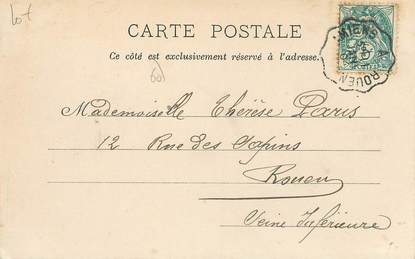 Lot
CARTE POSTALE
Ce côté est exclusivement réservé à l'adresse.
AMIENS A ROUEN
Mademoiselle Thérèse Paris
12 Rue des Sapins
Rouen
Seine Inférieure